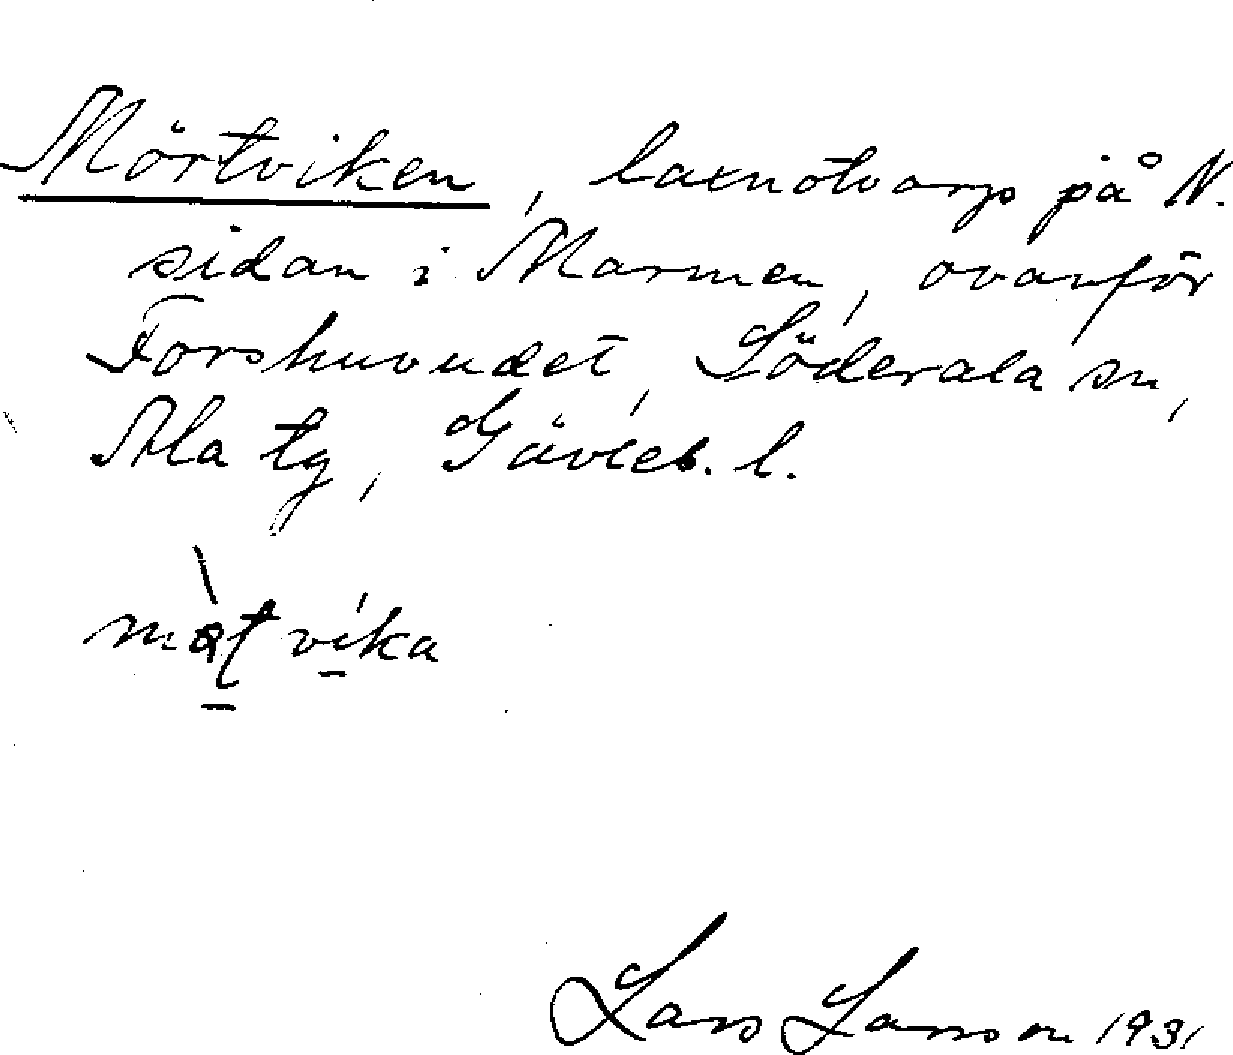 Mörtviken, laxnotvarp på N.
sidan i Marmen, ovanför
Forshuvudet, Söderala sn,
Ala tg, Gävleb. l.
vika
Lars Larsson 1931